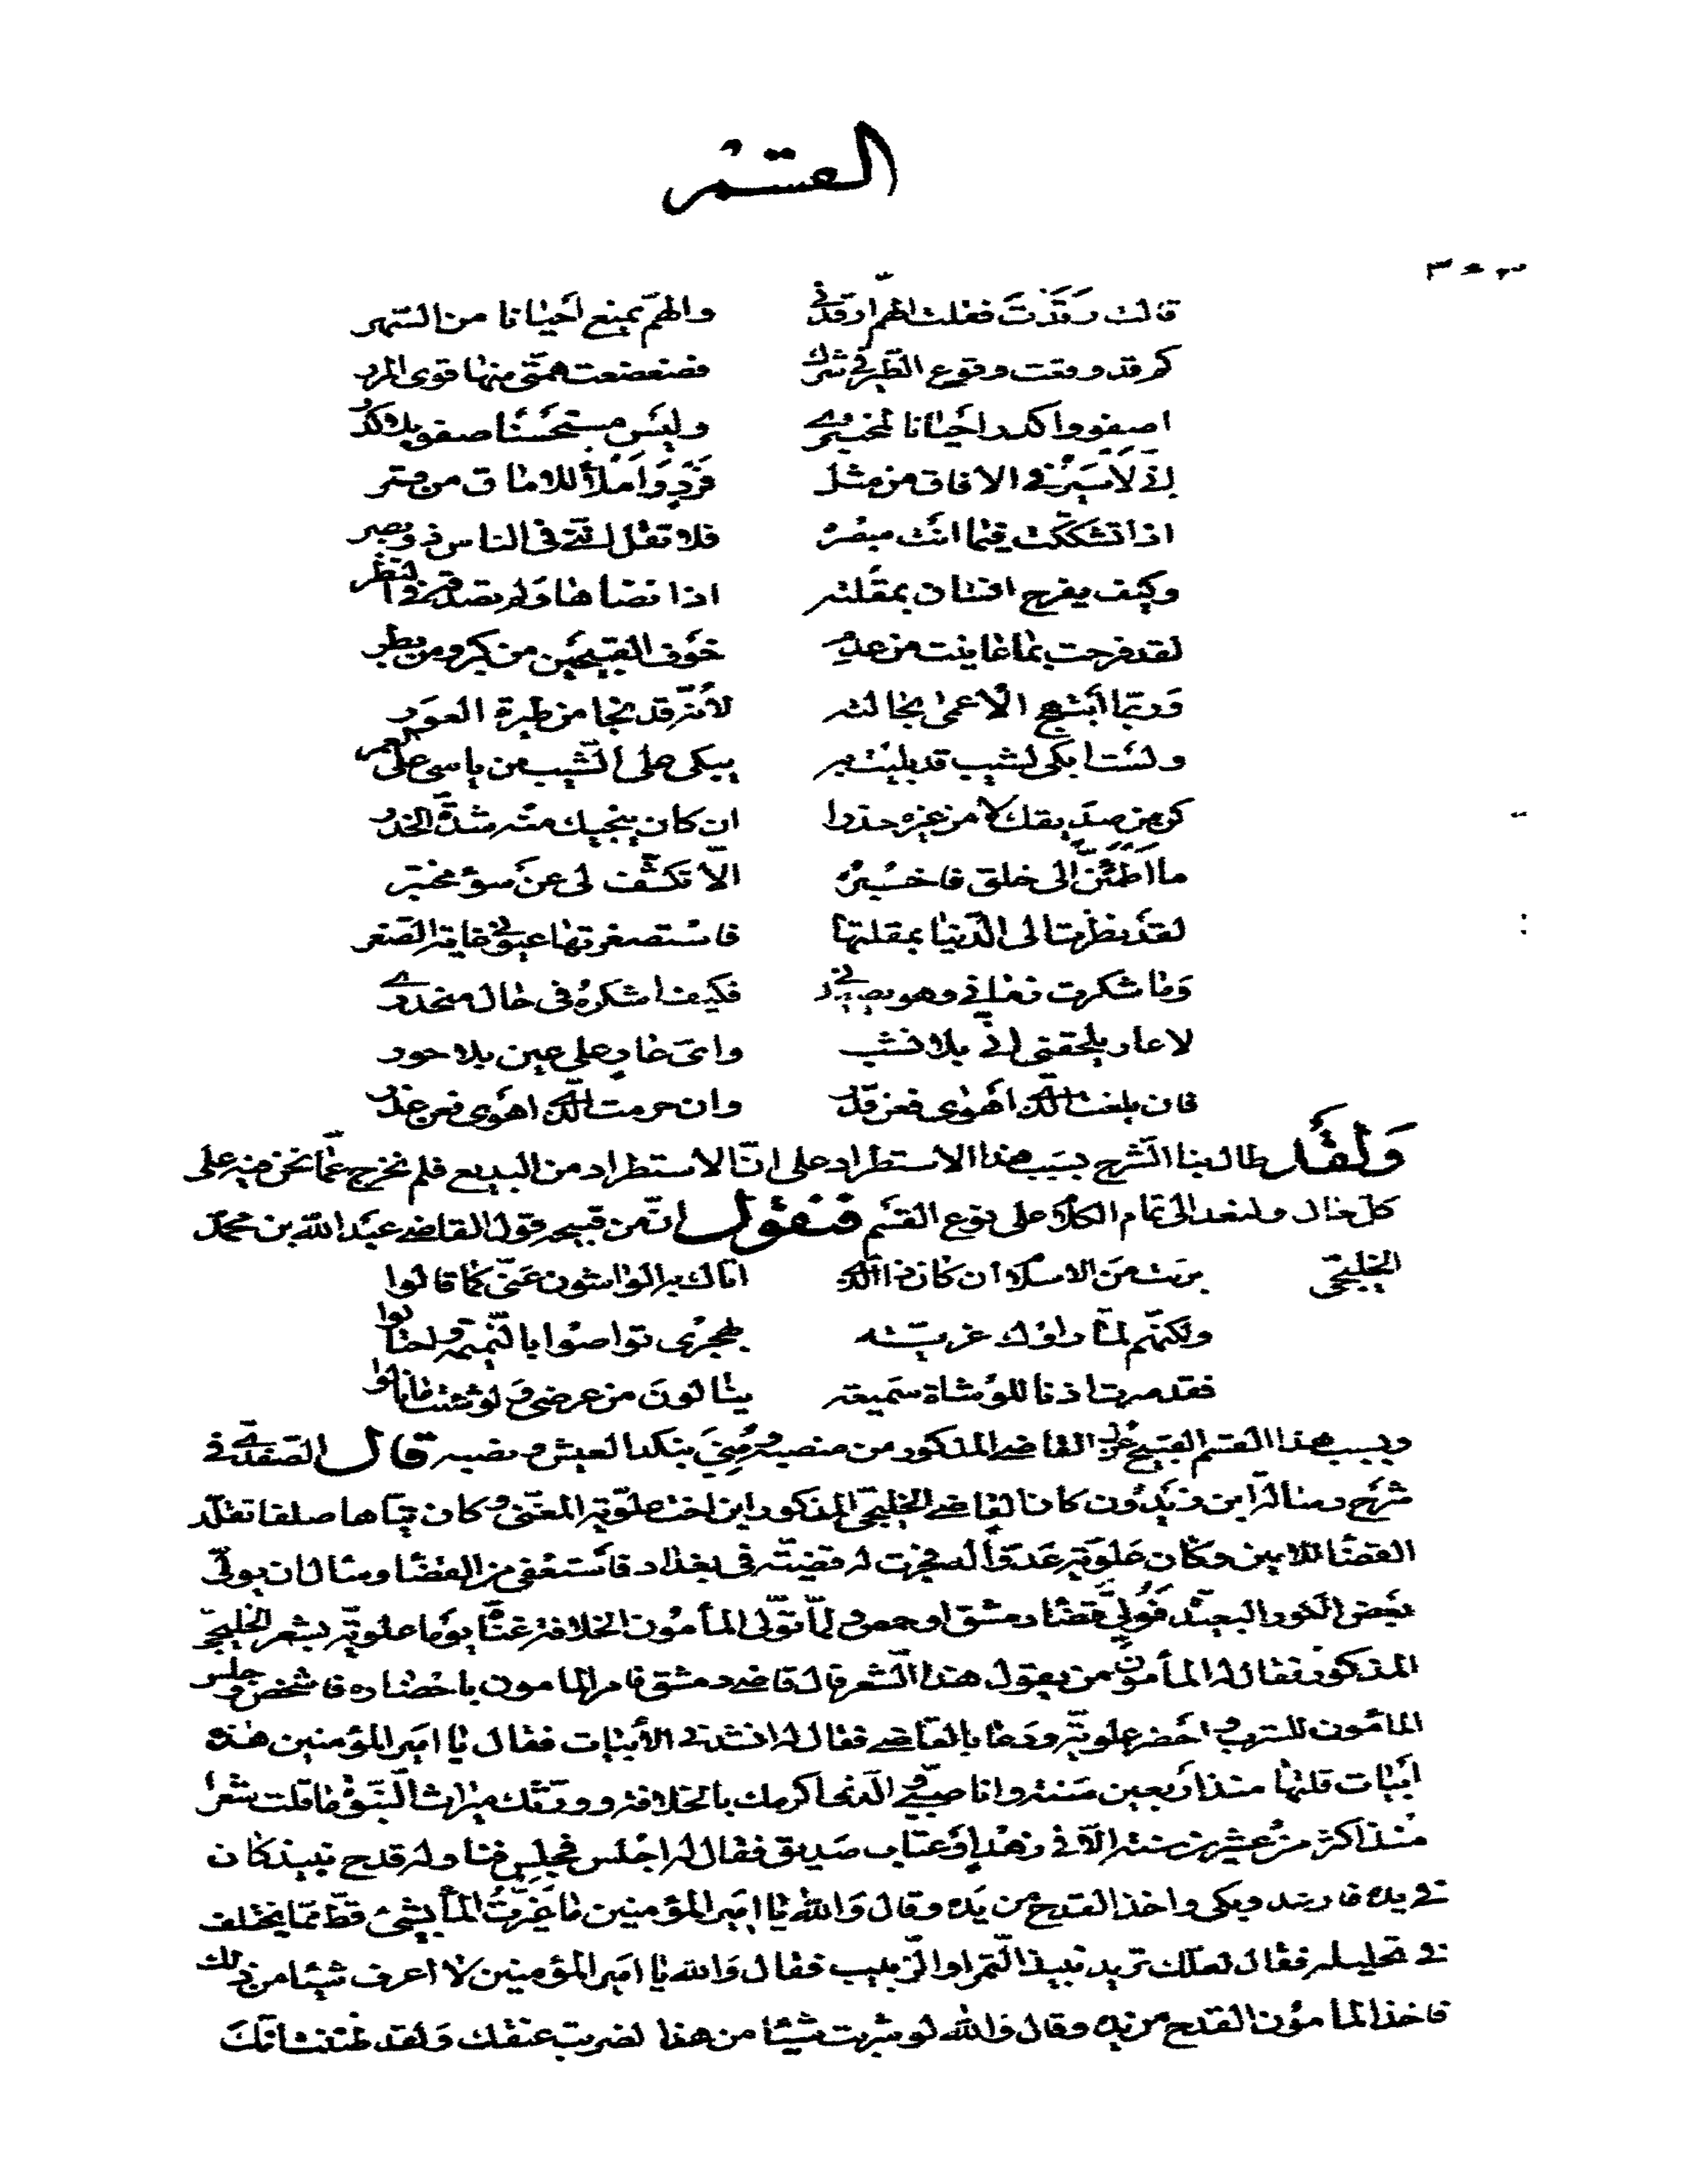 القسم
قالت رقدت فقلت الهم ارقدني والهم يمنع أحيانا من السهر
كم قد وقعت وقوع الطير في شرك فضعضعت همتي منها قوى المرر
اصفو واكدر احيانا لمختبري وليس مستحسنا صفو بلا كدر
إني لأسير في الافاق من مثل فرد واملأ للاماق من قمر
اذا تشككت فيما انت مبصره فلا تقل انني في الناس ذو بصر
وكيف يفرح انسان بمقلته اذا نضاها ولم تصدقه في النظر
لقد فرحت بما عاينت من عدم خوف القبيحين من كبر ومن بطر
وربما ابتهج الأعمى بحالته لأنه قد نجا من طيرة العور
ولست ابكي لشيب قد بليت به يبكي على الشيب من ياسى على العمر
كن من صديقك لا من غيره حذرا ان كان ينجيك منه شدة الحذر
ما اطمئن الى خلق فاخبره الا تكشف لي عن سوء مختبر
لقد نظرت الى الدنيا بمقلتها فاستصغرتها عيوني غاية الصغر
وما شكرت زماني وهو يصعدني فكيف اشكره في حال منحدري
لا عار يلحقني اني بلا نشب واي عار على عين بلا حور
فان بلغت الذي اهوى فعن قدر وان حرمت الذي اهوى فعن عذر
ولقد طال بنا الشرح بسبب هذا الاستطراد على ان الاستطراد من البديع فلم نخرج عما نحن فيه على
كل حال ولنعد الى تمام الكلام على نوع القسم فنقول ان من قبيحه قول القاضي عبد الله بن محمد
الخليجي برئت من الاسلام ان كان ذا الذي اتاك به الواشون عني كما قالوا
ولكنهم لما راوك غرية بهجري تواصوا بالنميمة واحتالوا
فقد صرت اذنا للوشاة سميعة ينالون من عرضي ولو شئت ما نالوا
وبسبب هذا القسم القبيح عزل القاضي المذكور من منصبه ومني بنكد العيش ونصبه قال الصفدي في
شرح رسالة ابن زيدون كان القاضي الخليجي المذكور ابن اخت علوية المغني وكان تياها صلفا تقلد
القضا للامين وكان علوية عدوا له فجرت له قضية في بغداد فاستعفى من القضا وسال ان يولى
بعض الكور البعيدة فولي قضا دمشق او حمص ولما تولى المأمون الخلافة غنا يوما علوية بشعر الخليجي
المذكور فقال له المأمون من يقول هذا الشعر قال قاضي دمشق فامر المامون باحضاره فاشخص وجلس
المامون للشرب واحضر علوية ودعا بالقاضي فقال له انشدني الأبيات فقال يا امير المؤمنين هذه
ابيات قلتها منذ اربعين سنة وانا صبي والذي اكرمك بالخلافة وورثك ميراث النبوة ما قلت شعرا
منذ اكثر من عشرين سنة الا في زهد او عتاب صديق فقال له اجلس فجلس فناوله قدح نبيذ كان
في يده فارتعد وبكى واخذ القدح من يده وقال والله يا امير المؤمنين ما غيرت الماء بشيء قط مما يختلف
في تحليله فقال لعلك تريد نبيذ التمر او الزبيب فقال والله يا امير المؤمنين لا اعرف شيئا من ذلك
فاخذ المأمون القدح من يده وقال والله لو شربت شيئا من هذا لضربت عنقك ولقد ظننت انك